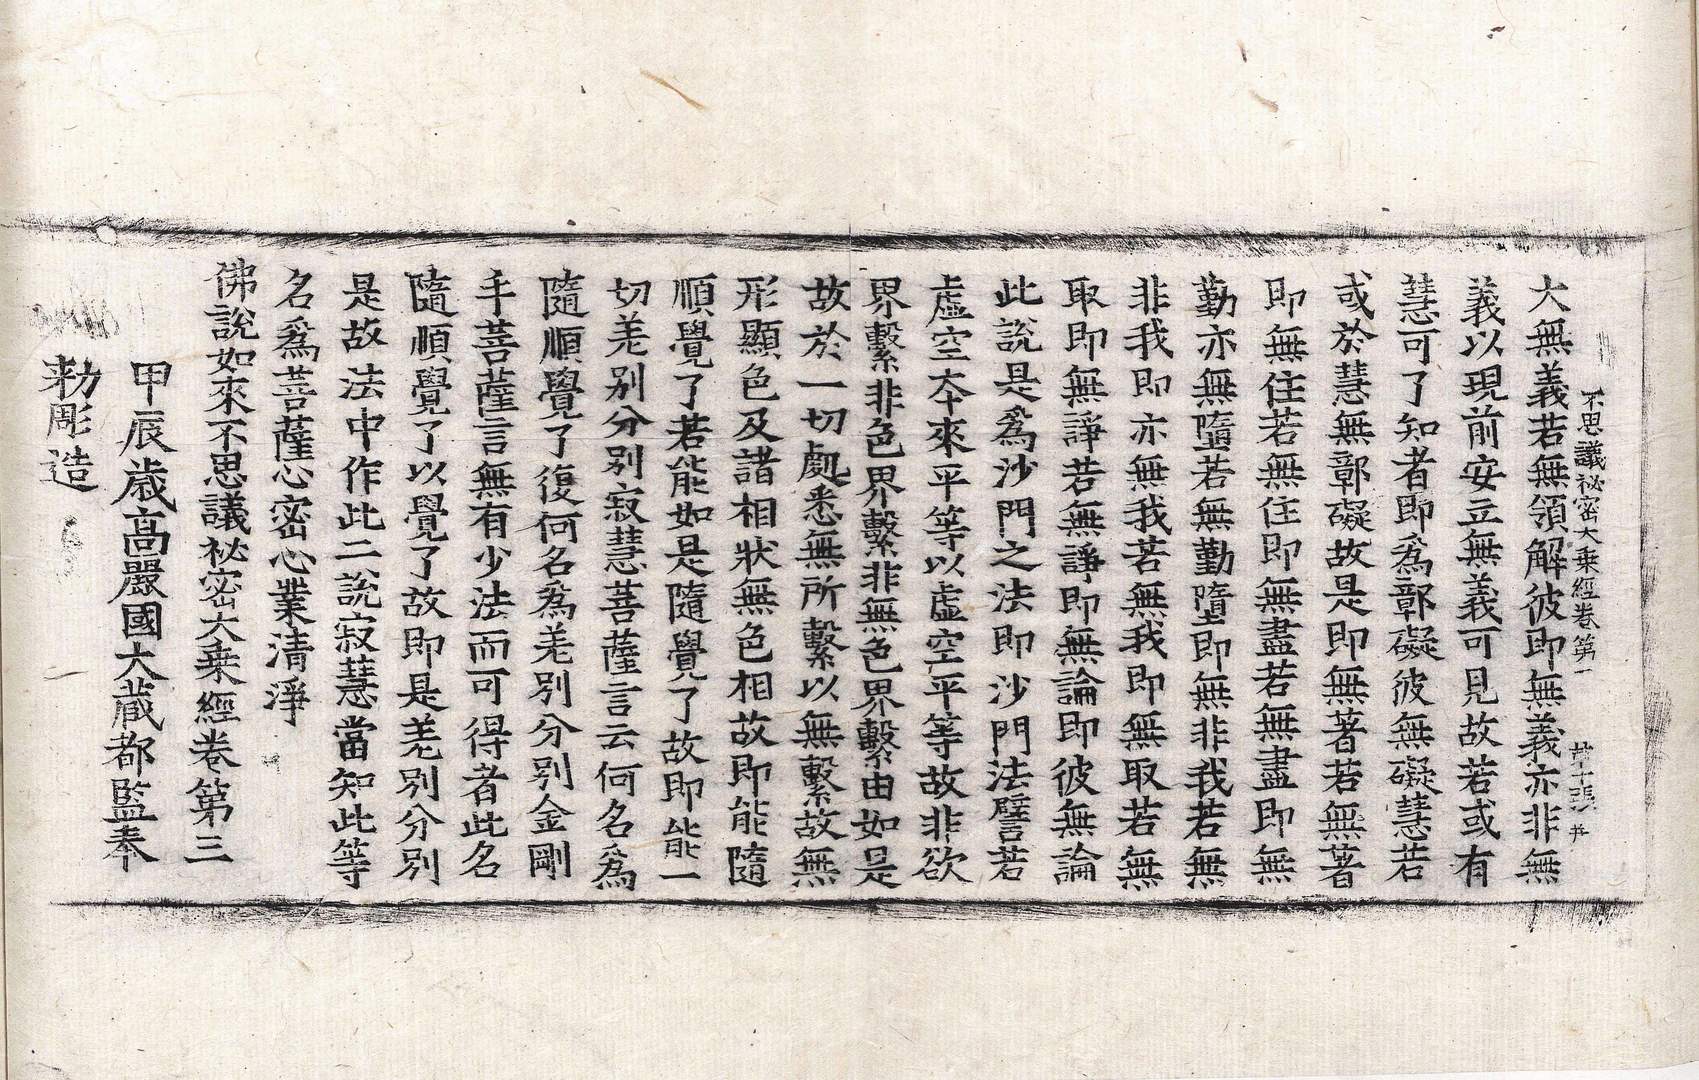 不思議祕密大乘經卷第一
大無義若無領解彼即無義亦非無
義以現前安立無義可見故若或有
慧可了知者即爲鄣礙彼無礙慧若
或於慧無鄣礙故是即無著若無著
即無住若無住即無盡若無盡即無
勤亦無墮若無勤墮即無非我若無
非我即亦無我若無我即無取若無
取即無諍若無諍即無論即彼無論
此說是爲沙門之法即沙門法譬若
虛空夲來平等以虛空平等故非欲
界繫非色界繫非無色界繫由如是
故於一切處悉無所繫以無繫故無
形顯色及諸相狀無色相故即能隨
順覺了若能如是隨覺了故即能一
切羌别分別寂慧菩薩言云何名爲
隨順覺了復何名爲羌别分别金剛
手菩薩言無有少法而可得者此名
隨順覺了以覺了故即是羌別分別
是故法中作此二說寂慧當知此等
名爲菩薩心密心業清淨
佛說如來不思議祕密大乘經卷第三
甲辰歲高麗國大藏都監奉
勅彫造